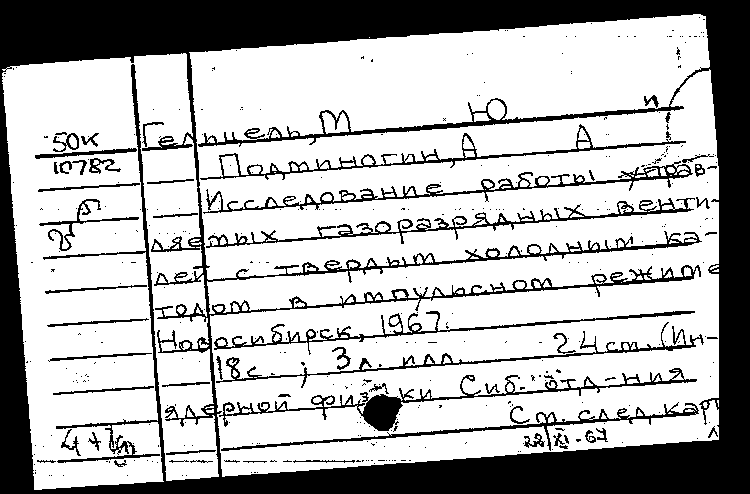 50к Гельцель, М Ю и
10782 Подминогин, А А
Исследование работы управ-
ляемых газоразрядных венти-
лей с твердым холодным ка-
тодом в импульсном режиме
Новосибирск, 1967.
18с. ; 3л. илл. 24 см. (Ин-
ядерной физики Сиб. отд-ния
См. след. карт
28/XI-67